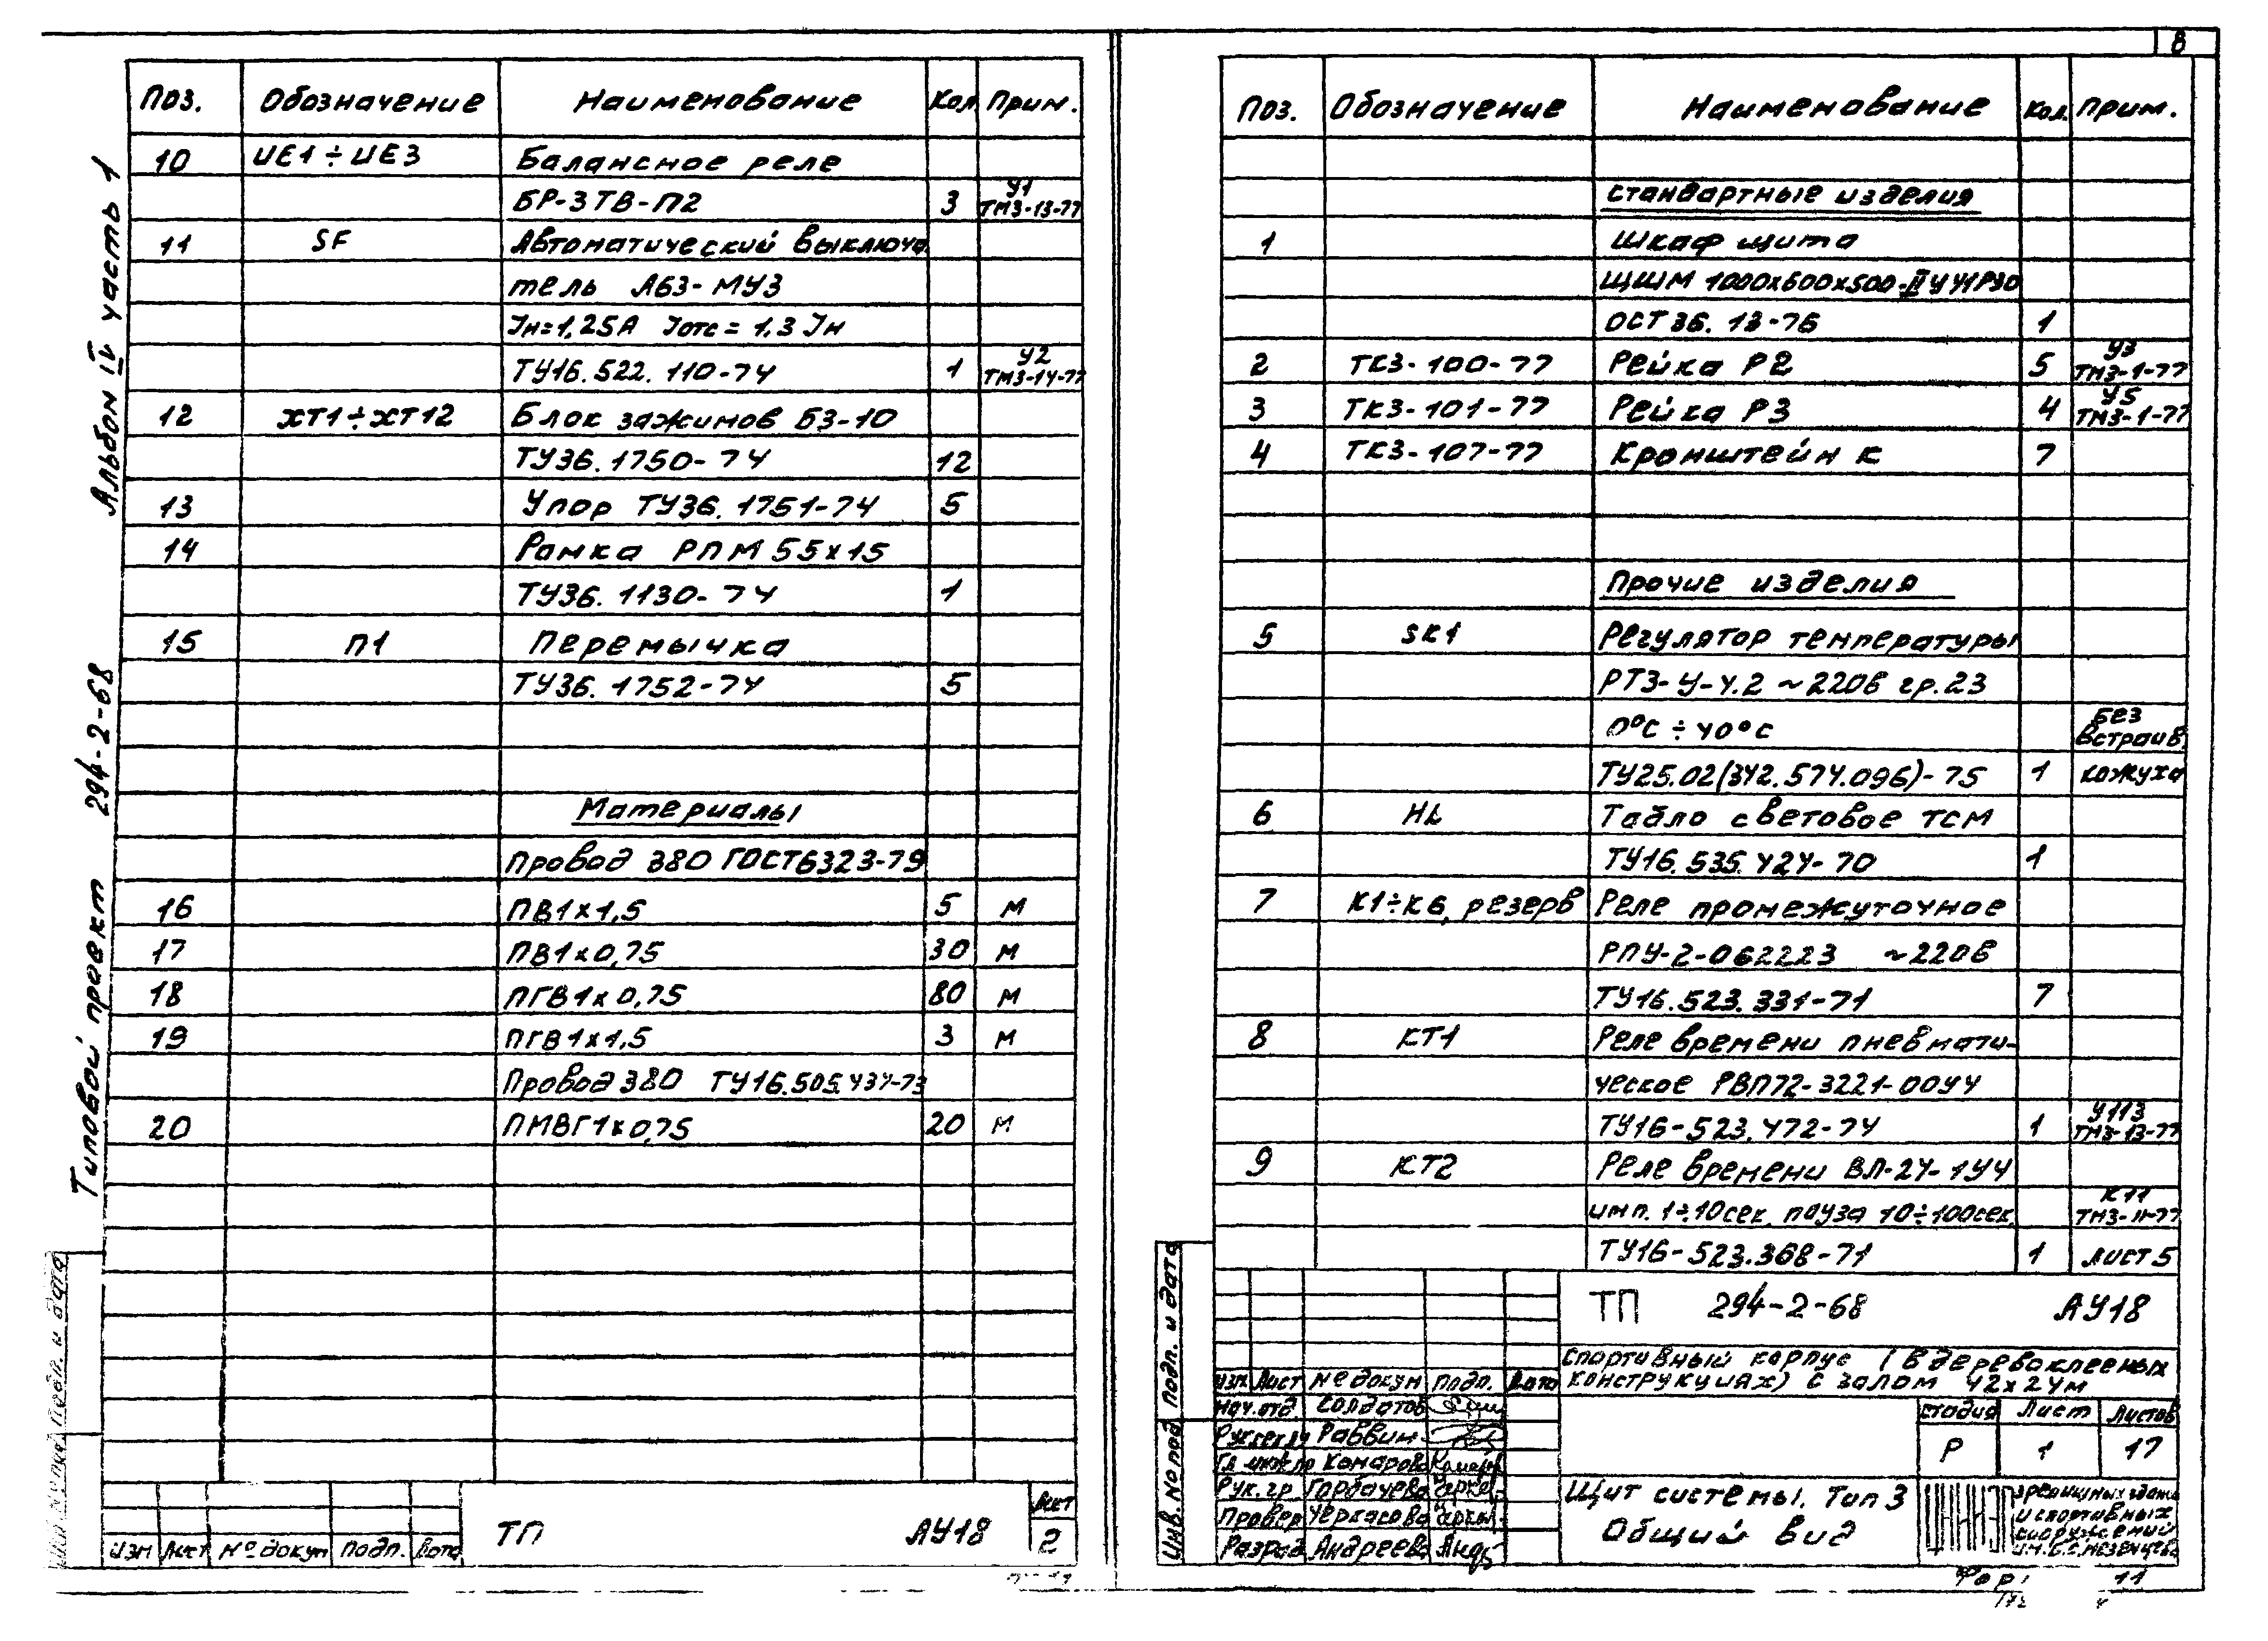 8
Альбом IV часть 1
Типовой проект 294-2-68
Поз. Обозначение Наименование Кол. Прим.
10 UE1÷UE3 Балансное реле
БР-3ТВ-П2 3 У1 ТМ3-13-77
11 SF Автоматический выключа
тель А63-МУ3
Iн=1,25А Iотс=1,3 Iн
ТУ16.522.110-74 1 У2 ТМ3-14-77
12 ХТ1÷ХТ12 Блок зажимов БЗ-10
ТУ36.1750-74 12
13 Упор ТУ36.1751-74 5
14 Рамка РПМ 55х15
ТУ36.1130-74 1
15 П1 Перемычка
ТУ36.1752-74 5
Материалы
Провод 380 ГОСТ6323-79
16 ПВ1х1,5 5 м
17 ПВ1х0,75 30 м
18 ПГВ1х0,75 80 м
19 ПГВ1х1,5 3 м
Провод 380 ТУ16.505.434-73
20 ПМВГ1х0,75 20 м
Изм Лист № докум Подп. Дата
ТП АУ18
Лист
2
Поз. Обозначение Наименование Кол. Прим.
Стандартные изделия
1 Шкаф щита
ЩШМ 1000х600х500-II УУ1Р30
ОСТ36.13-76 1
2 ТК3-100-77 Рейка Р2 5 У3 ТМ3-1-77
3 ТК3-101-77 Рейка Р3 4 У5 ТМ3-1-77
4 ТК3-107-77 Кронштейн К 7
Прочие изделия
5 SK1 Регулятор температуры
РТ3-У-4.2 ~220в гр.23
0°С÷40°С Без встраив.
ТУ25.02(342.574.096)-75 1 кожуха
6 HL Табло световое ТСМ
ТУ16.535.424-70 1
7 К1÷К6, резерв Реле промежуточное
РПУ-2-062223 ~220в
ТУ16.523.331-71 7
8 КТ1 Реле времени пневмати-
ческое РВП72-3221-00У4
ТУ16-523.472-74 1 У113 ТМ3-13-77
9 КТ2 Реле времени ВЛ-24-1У4
имп. 1÷10сек. пауза 10÷100сек. К11 ТМ3-11-77
ТУ16-523.368-71 1 лист 5
ТП 294-2-68 АУ18
Спортивный корпус (в деревоклееных
конструкциях) с залом 42х24м
Изм Лист № докум Подп. Дата
Нач.отд. Солдатов
Раввин
Комарова
Рук.гр Горбачева
Провер Черкасова
Разраб Андреева
Стадия Лист Листов
Р 1 17
Щит системы. Тип 3
Общий вид
зрелищных здани
и спортивных
сооружений
им. Б.С. Мезенцева
Подп. и дата
Инв. № подл
Подп. и дата
11